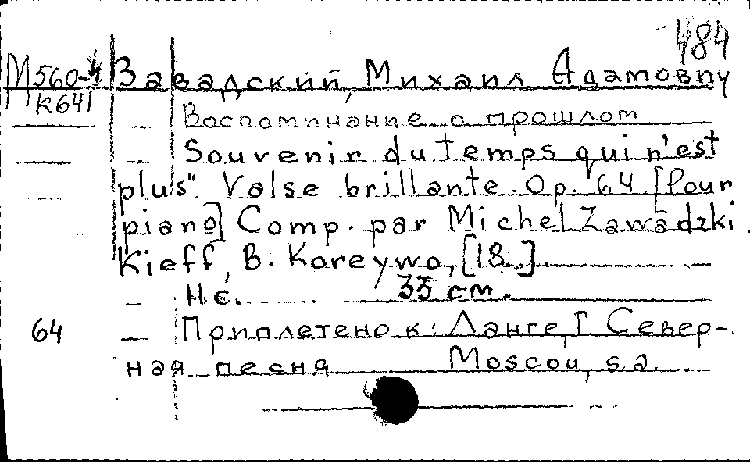 484
М560-4 Завадский, Михаил Адамович
К641
Воспоминание о прошлом
Souvenir du temps qui n'est
plus". Valse brillante. Op. 64. [Pour
piano] Comp. par Michel Zawadzki.
Kieff, B. Koreywo, [18..]
Нс. 35 см.
64 Приплетено к: Ланге, Г. Север-
ная песня Moscou, s.a.